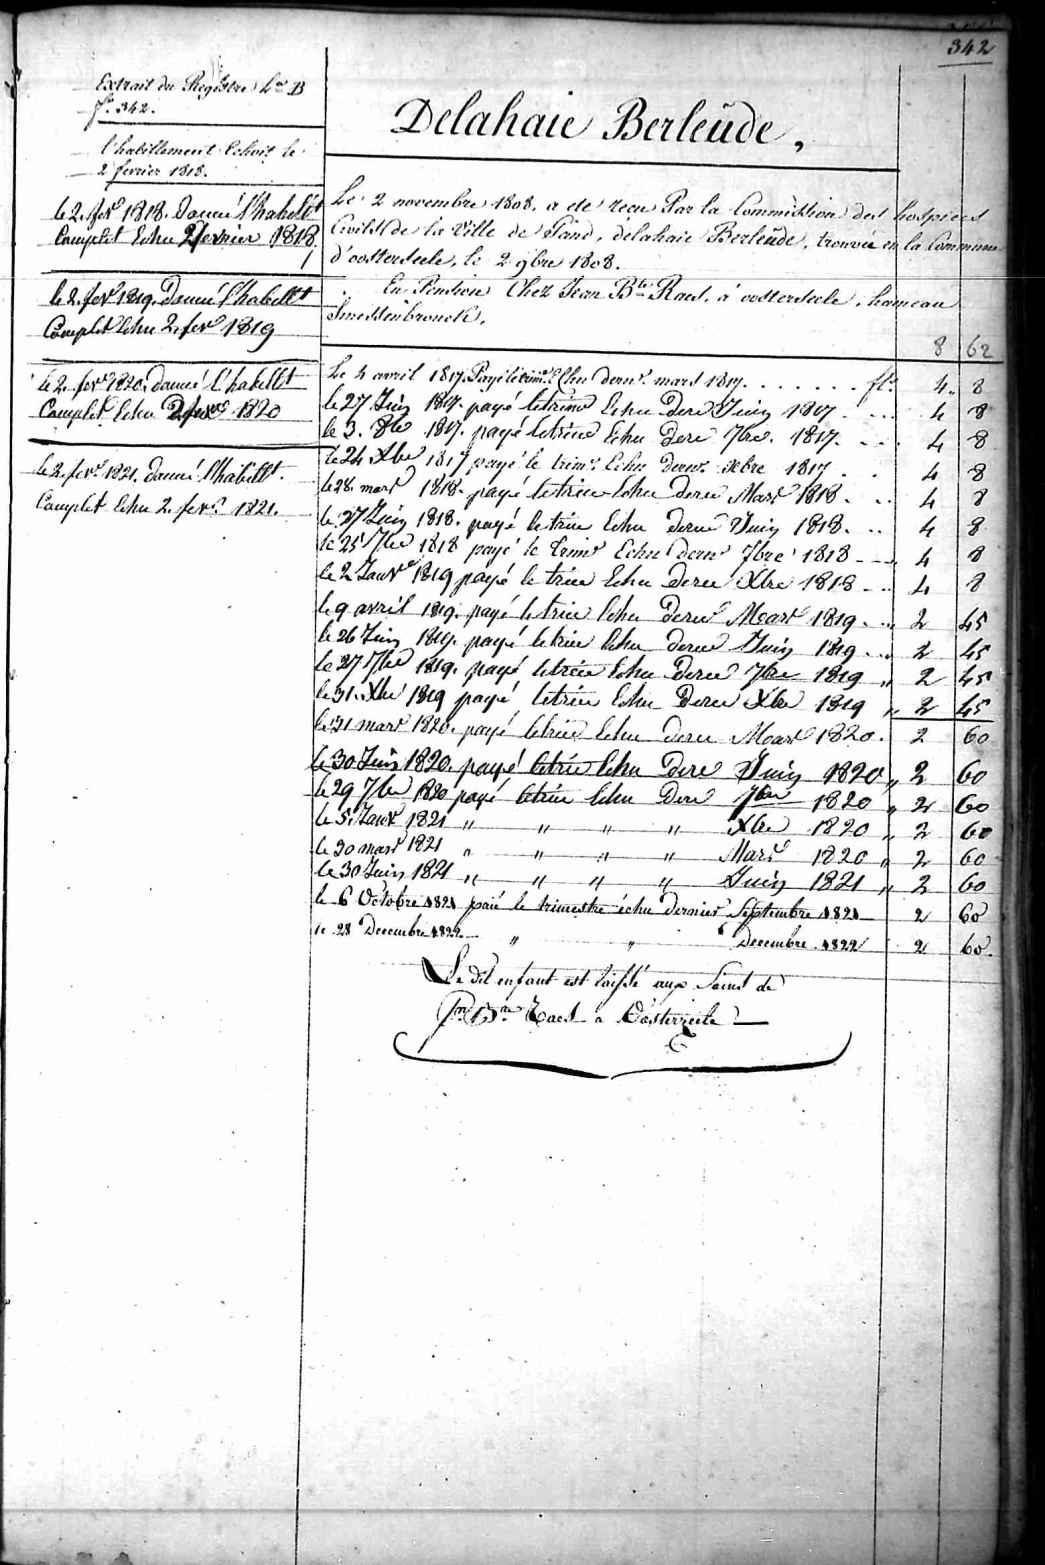 342
Extrait du Registre L.re B
f.o 342.
l'habillement Echoit le
2 fevrier 1818.
le 2. fevr 1818. donné l'habillt
Complet Echu 2 fevrier 1818
le 2. fevr 1819. donné l'habillt
Complet Echu 2 fevr 1819
le 2. fevr 1820. donné l'habillt
Complet Echu 2 fevr 1820
le 2. fevr 1821. donné l'habillt.
Complet Echu 2. fevr 1821.
Delahaie Berleüde,
Le 2 novembre 1808. a été recu Par la Commission des hospices
Civils de la Ville de Gand, delahaie Berleüde, trouvée en la Commune
d'oosterseele, le 2 9bre 1808.
En Pension Chez Jean Bte Raes, á oosterseele, hameau
Smessenbrouck,
8 62
Le 4 avril 1817. Payé le trim. Echu dernr. mars 1817. fl. 4. 8
le 27 Juin 1817. payé le trim Echu dern Juin 1817. 4 8
le 3. 8bre 1817. payé le trim Echu dern 7bre. 1817. 4 8
le 24 Xbre 1817 payé le trimr. Echu dernr. Xbre 1817 4 8
le 28. mars 1818. payé le trim Echu dern Mars 1818. 4 8
le 27 Juin 1818. payé le trim Echu dern Juin 1818. 4 8
le 25 7bre 1818 payé le trimr Echu dernr 7bre 1818 4 8
le 2 Janvr 1819 payé le trim Echu dern Xbre 1818 4 8
le 9 avril 1819. payé le trim Echu dernr Mars 1819. 2 45
le 26 Juin 1819. payé le trim Echu dern Juin 1819 2 45
le 27 7bre 1819. payé le trim Echu dern 7bre 1819 " 2 45
le 31. Xbre 1819 payé le trim Echu Dern Xbre 1819 " 2 45
le 31 mars 1820. payé le trim Echu dern Mars 1820. 2 60
le 30 Juin 1820. payé le trim Echu dern Juin 1820 " 2 60
le 29 7bre 1820 payé le trim Echu Dern 7bre 1820 " 2 60
le 5. Janvr 1821 " " " " Xbre 1820 " 2 60
le 30 mars 1821 " " " " Mars 1820 " 2 60
le 30 Juin 1821 " " " " Juin 1821 " 2 60
le 6 Octobre 1821 paié le trimestre échu dernier Septembre 1821 2 60
le 28 Decembre 1822 " " " Decembre 1822 2 60.
Le dit enfant est laissé aux Soins de
Jn Bte Raes à Oosterzeele